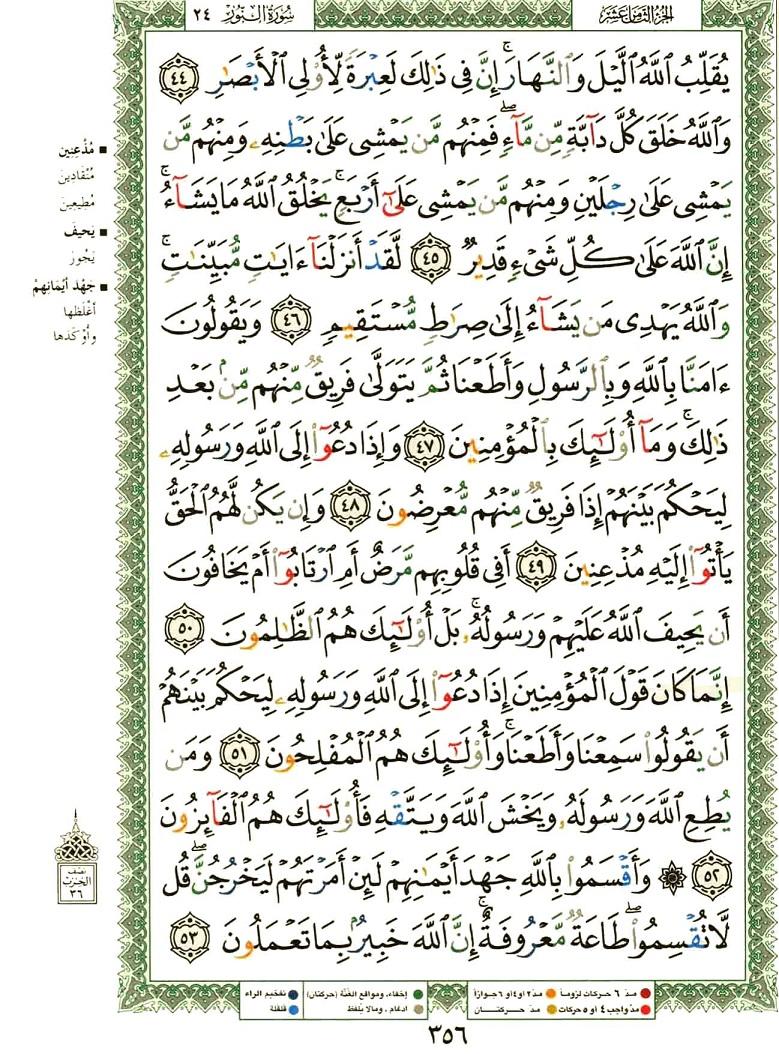 الجزء الثامن عشر
سورة النور ٢٤
يُقَلِّبُ ٱللَّهُ ٱلَّيْلَ وَٱلنَّهَارَۚ إِنَّ فِى ذَٰلِكَ لَعِبْرَةً لِّأُو۟لِى ٱلْأَبْصَٰرِ ٤٤
وَٱللَّهُ خَلَقَ كُلَّ دَآبَّةٍ مِّن مَّآءٍۖ فَمِنْهُم مَّن يَمْشِى عَلَىٰ بَطْنِهِۦ وَمِنْهُم مَّن
يَمْشِى عَلَىٰ رِجْلَيْنِ وَمِنْهُم مَّن يَمْشِى عَلَىٰٓ أَرْبَعٍۚ يَخْلُقُ ٱللَّهُ مَا يَشَآءُۚ
إِنَّ ٱللَّهَ عَلَىٰ كُلِّ شَىْءٍ قَدِيرٌ ٤٥ لَّقَدْ أَنزَلْنَآ ءَايَٰتٍ مُّبَيِّنَٰتٍۚ
وَٱللَّهُ يَهْدِى مَن يَشَآءُ إِلَىٰ صِرَٰطٍ مُّسْتَقِيمٍ ٤٦ وَيَقُولُونَ
ءَامَنَّا بِٱللَّهِ وَبِٱلرَّسُولِ وَأَطَعْنَا ثُمَّ يَتَوَلَّىٰ فَرِيقٌ مِّنْهُم مِّنۢ بَعْدِ
ذَٰلِكَۚ وَمَآ أُو۟لَٰٓئِكَ بِٱلْمُؤْمِنِينَ ٤٧ وَإِذَا دُعُوٓا۟ إِلَى ٱللَّهِ وَرَسُولِهِۦ
لِيَحْكُمَ بَيْنَهُمْ إِذَا فَرِيقٌ مِّنْهُم مُّعْرِضُونَ ٤٨ وَإِن يَكُن لَّهُمُ ٱلْحَقُّ
يَأْتُوٓا۟ إِلَيْهِ مُذْعِنِينَ ٤٩ أَفِى قُلُوبِهِم مَّرَضٌ أَمِ ٱرْتَابُوٓا۟ أَمْ يَخَافُونَ
أَن يَحِيفَ ٱللَّهُ عَلَيْهِمْ وَرَسُولُهُۥۚ بَلْ أُو۟لَٰٓئِكَ هُمُ ٱلظَّٰلِمُونَ ٥٠
إِنَّمَا كَانَ قَوْلَ ٱلْمُؤْمِنِينَ إِذَا دُعُوٓا۟ إِلَى ٱللَّهِ وَرَسُولِهِۦ لِيَحْكُمَ بَيْنَهُمْ
أَن يَقُولُوا۟ سَمِعْنَا وَأَطَعْنَاۚ وَأُو۟لَٰٓئِكَ هُمُ ٱلْمُفْلِحُونَ ٥١ وَمَن
يُطِعِ ٱللَّهَ وَرَسُولَهُۥ وَيَخْشَ ٱللَّهَ وَيَتَّقْهِ فَأُو۟لَٰٓئِكَ هُمُ ٱلْفَآئِزُونَ
٥٢ ۞ وَأَقْسَمُوا۟ بِٱللَّهِ جَهْدَ أَيْمَٰنِهِمْ لَئِنْ أَمَرْتَهُمْ لَيَخْرُجُنَّۖ قُل
لَّا تُقْسِمُوا۟ۖ طَاعَةٌ مَّعْرُوفَةٌۚ إِنَّ ٱللَّهَ خَبِيرٌۢ بِمَا تَعْمَلُونَ ٥٣
■ مُذْعِنِين
مُنْقَادِينَ
مُطِيعِينَ
■ يَحيفَ
يَجُورَ
■ جَهْد أيْمَانِهِمْ
أغْلَظَها
وأوْكَدَها
نصف
الحزب
٣٦
● مدّ ٦ حركات لزوماً ● مدّ ٢ أو ٤ أو ٦ جوازاً
● مدّ واجب ٤ أو ٥ حركات ● مدّ حركتان
● إخفاء، ومواقع الغنّة (حركتان) ● تفخيم الراء
● ادغام، ومالا يلفظ ● قلقلة
٣٥٦